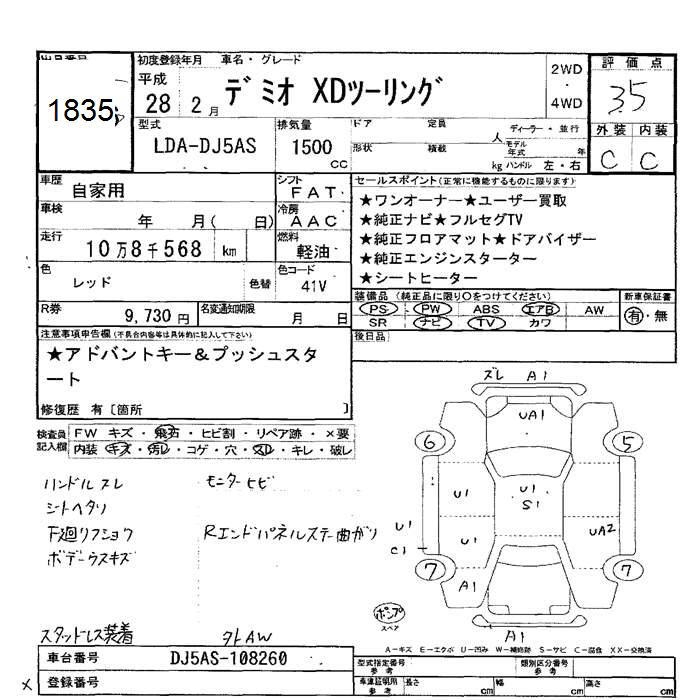 出品番号
1835
初度登録年月
平成
28 2月
車名・グレード
デミオ XDツーリング
2WD
・
4WD
評価点
3.5
外装 内装
C C
型式
LDA-DJ5AS
排気量
1500
cc
ドア 定員 人
形状 積載 kg
ディーラー・並行
モデル年式 年
ハンドル 左・右
車歴
自家用
シフト
FAT
車検
年 月( 日)
冷房
AAC
走行
10万8千568 km
燃料
軽油
色
レッド
色替
色コード
41V
R券
9,730円
名変通知期限
月 日
セールスポイント(正常に機能するものに限ります)
★ワンオーナー★ユーザー買取
★純正ナビ★フルセグTV
★純正フロアマット★ドアバイザー
★純正エンジンスターター
★シートヒーター
装備品(純正品に限り○をつけてください)
PS PW ABS エアB AW
SR ナビ TV カワ
新車保証書
有・無
後日品
注意事項申告欄(不具合内容等は具体的に記入して下さい)
★アドバントキー&プッシュスタ
ート
修復歴 有〔箇所 〕
検査員
記入欄
FW キズ・飛石・ヒビ割・リペア跡・×要
内装 キズ・汚レ・コゲ・穴・スレ・キレ・破レ
ハンドルスレ
モニターヒビ
シートヘタリ
下廻リフショク
Rエンドパネルステー曲がり
ボデーウスキズ
スタッドレス装着
タトAW
ズレ A1
UA1
6 5
U1
U1
S1
U1
C1
U1
UA2
7 7
A1
ポンプ
スペア
A1
A-キズ E-エクボ U-凹み W-補修跡 S-サビ C-腐食 XX-交換済
車台番号
DJ5AS-108260
× 登録番号
型式指定番号
参考
類別区分番号
参考
車庫証明用
参考
長さ cm
幅 cm
高さ cm